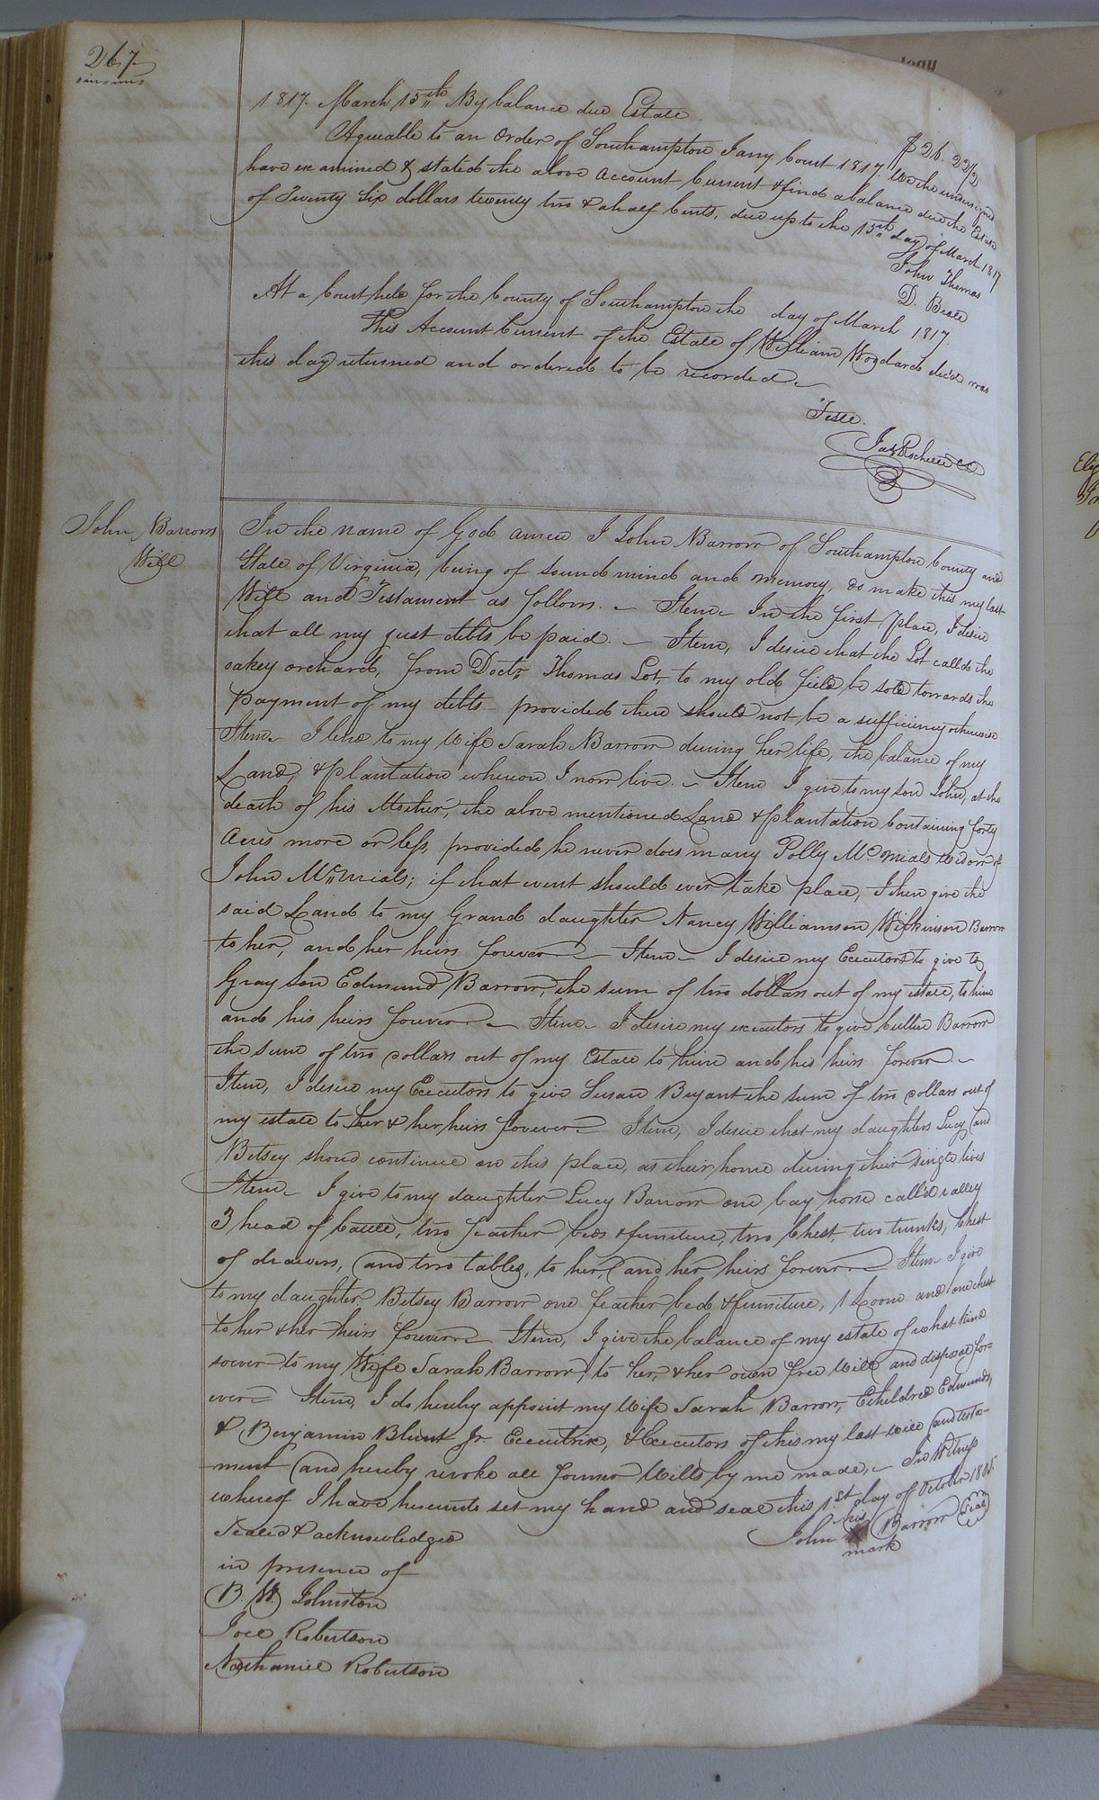 267
1817. March 15th By balance due Estate $26. 22 1/2
Agreeable to an Order of Southampton Jany Court 1817 We the undersigned
have examined & stated the above Account Current & find a balance due the Estate
of Twenty Six dollars twenty two & a half Cents, due up to the 15th day of March 1817
John Thomas
D. Beale
At a Court held for the County of Southampton the day of March 1817.
This Account Current of the Estate of William Woodard dec'd was
this day returned and ordered to be recorded
Teste.
Jas Rochelle CC
John Barrows
Will
In the name of God amen I John Barrow of Southampton County and
State of Virginia, being of sound mind and memory, do make this my last
Will and Testament as follows. Item In the first place, I desire
that all my just debts be paid. Item, I desire that the Lot called the
oakey orchard, from Doctr Thomas Lot, to my old field, be sold towards the
payment of my debts provided there should not be a sufficiency otherwise
Item I lend to my Wife Sarah Barrow during her life, the balance of my
Land, & plantation whereon I now live. Item I give to my son John, at the
death of his Mother, the above mentioned Land & plantation Containing forty
Acres more or less, provided he never does marry Polly McMials widow of
John McMials; if that event should ever take place, I then give the
said Land to my Grand daughter Nancy Williamson Wilkinson Barrow
to her, and her heirs forever Item I desire my Executors to give to
Gray son Edmund Barrow, the sum of two dollars out of my estate, to him
and his heirs forever Item I desire my executors to give Cullin Barrow
the sum of two dollars out of my Estate to him and his heirs forever
Item, I desire my Executors to give Susan Bryant the sum of two dollars out of
my estate to her & her heirs forever Item, I desire that my daughters Lucy and
Betsey should continue on this place, as their home during their single lives
Item I give to my daughter Lucy Barrow one bay horse call'd
3 head of Cattle, two feather beds & furniture, two Chest, two trunks, Chest
of drawers, and two tables, to her, and her heirs forever Item I give
to my daughter Betsey Barrow one feather bed & furniture, 1 Loom and one chest
to her & her heirs forever Item, I give the balance of my estate of what kind
soever to my Wife Sarah Barrow, to her, & her own free Will and dispose for-
ever Item, I do hereby appoint my Wife Sarah Barrow, Etheldred Edmunds,
& Benjamin Blunt Jr. Executrix, & Executors of this my last will and testa-
ment and hereby revoke all former Wills by me made, In Witness
whereof I have hereunto set my hand and seal this 1st day of October 1805.
Sealed & acknowledged
in presence of
his
John Barrow (Seal)
mark
B. W. Johnston
Joel Robertson
Nathaniel Robertson